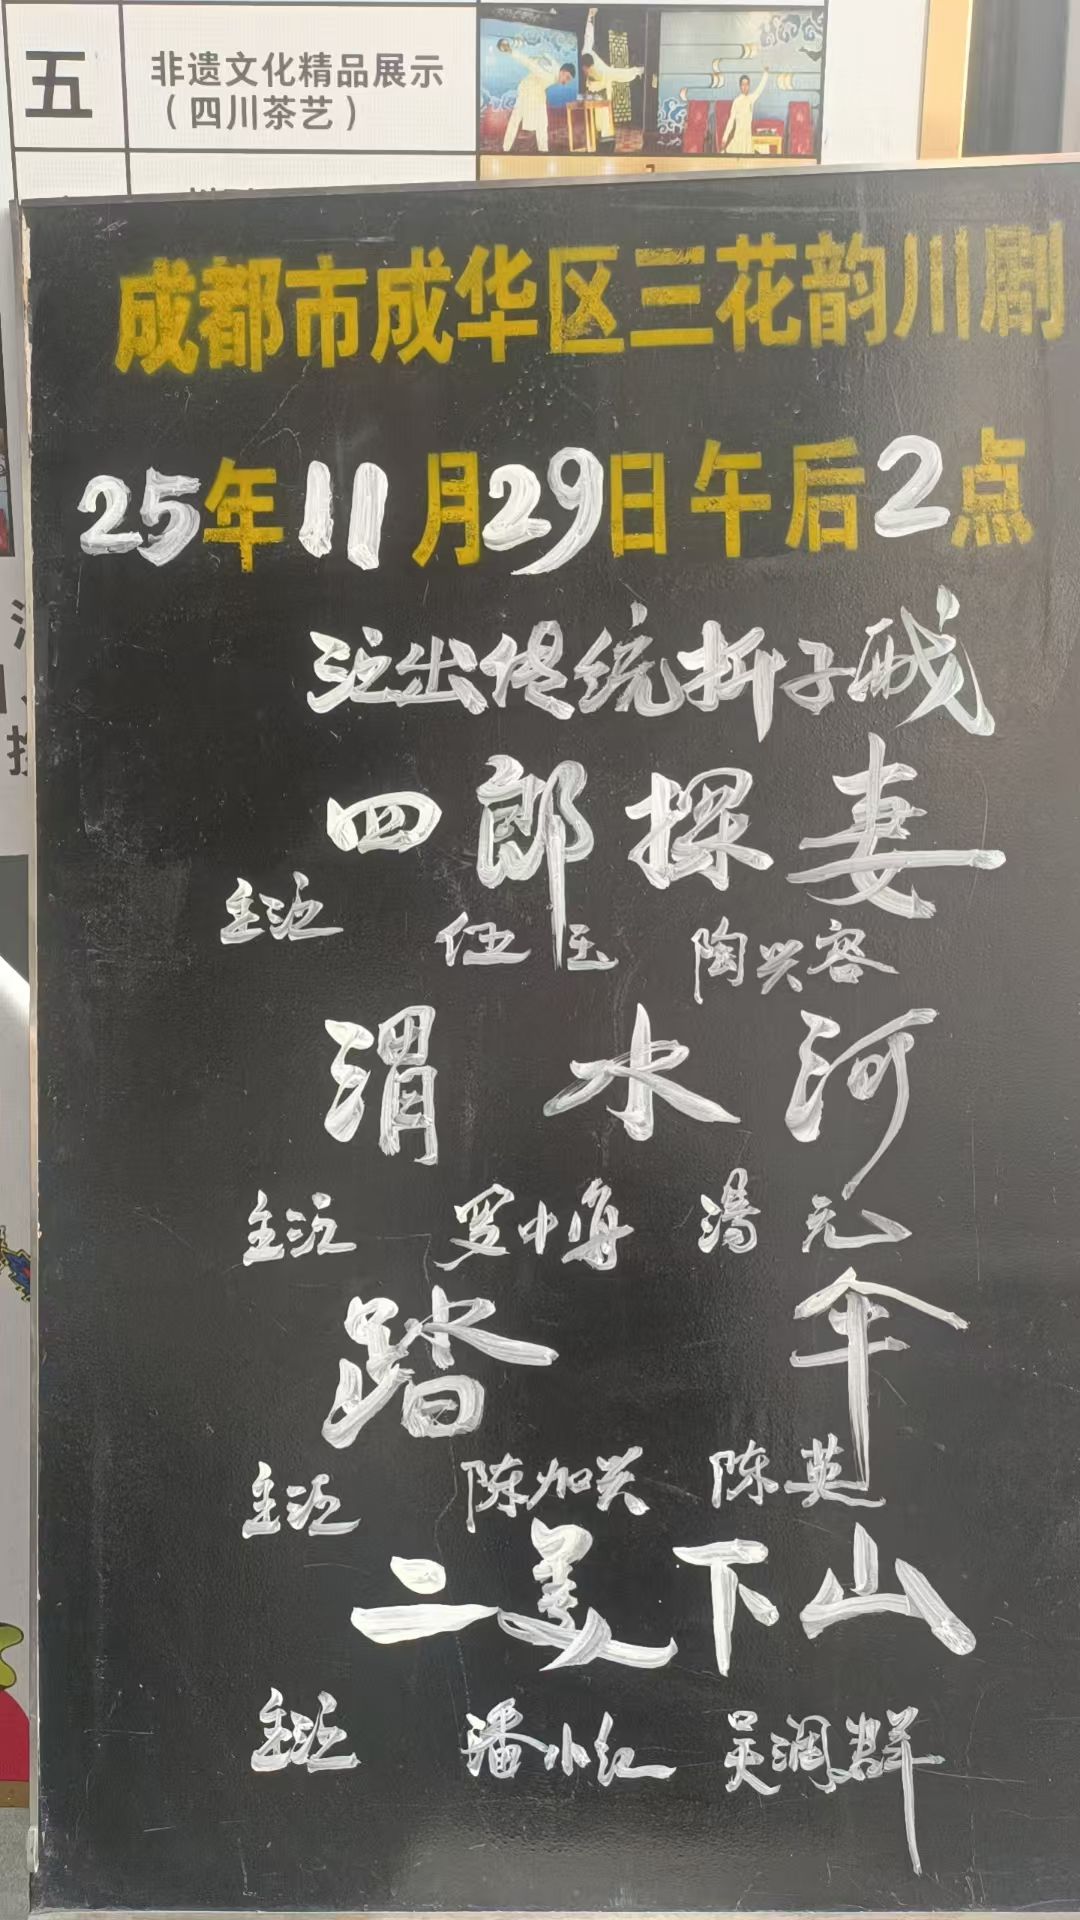 五
非遗文化精品展示
（四川茶艺）
成都市成华区三花韵川剧
25年11月29日午后2点
演出传统折子戏
四郎探妻
主演 任玉 陶兴容
渭水河
主演 罗中海 汤元
踏伞
主演 陈加兴 陈英
二美下山
主演 潘小红 吴润群